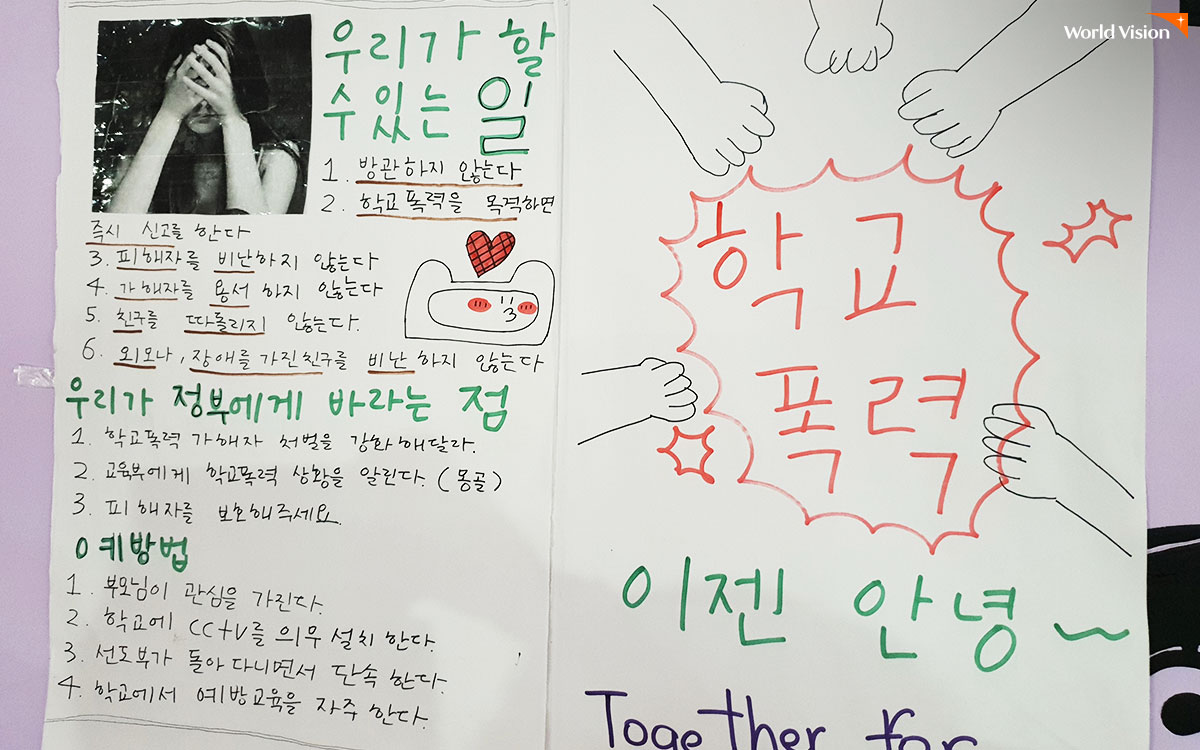 World Vision
우리가 할
수 있는 일
1. 방관하지 않는다
2. 학교폭력을 목격하면
즉시 신고를 한다
3. 피해자를 비난하지 않는다
4. 가해자를 용서 하지 않는다
5. 친구를 따돌리지 않는다.
6. 외모나, 장애를 가진친구를 비난 하지 않는다
우리가 정부에게 바라는 점
1. 학교폭력 가해자 처벌을 강화해달라.
2. 교육부에게 학교폭력 상황을 알린다. (몽골)
3. 피해자를 보호해주세요.
예방법
1. 부모님이 관심을 가진다.
2. 학교에 CCtv를 의무 설치 한다.
3. 선도부가 돌아 다니면서 단속 한다.
4. 학교에서 예방교육을 자주 한다.
학교
폭력
이젠 안녕~
Together for